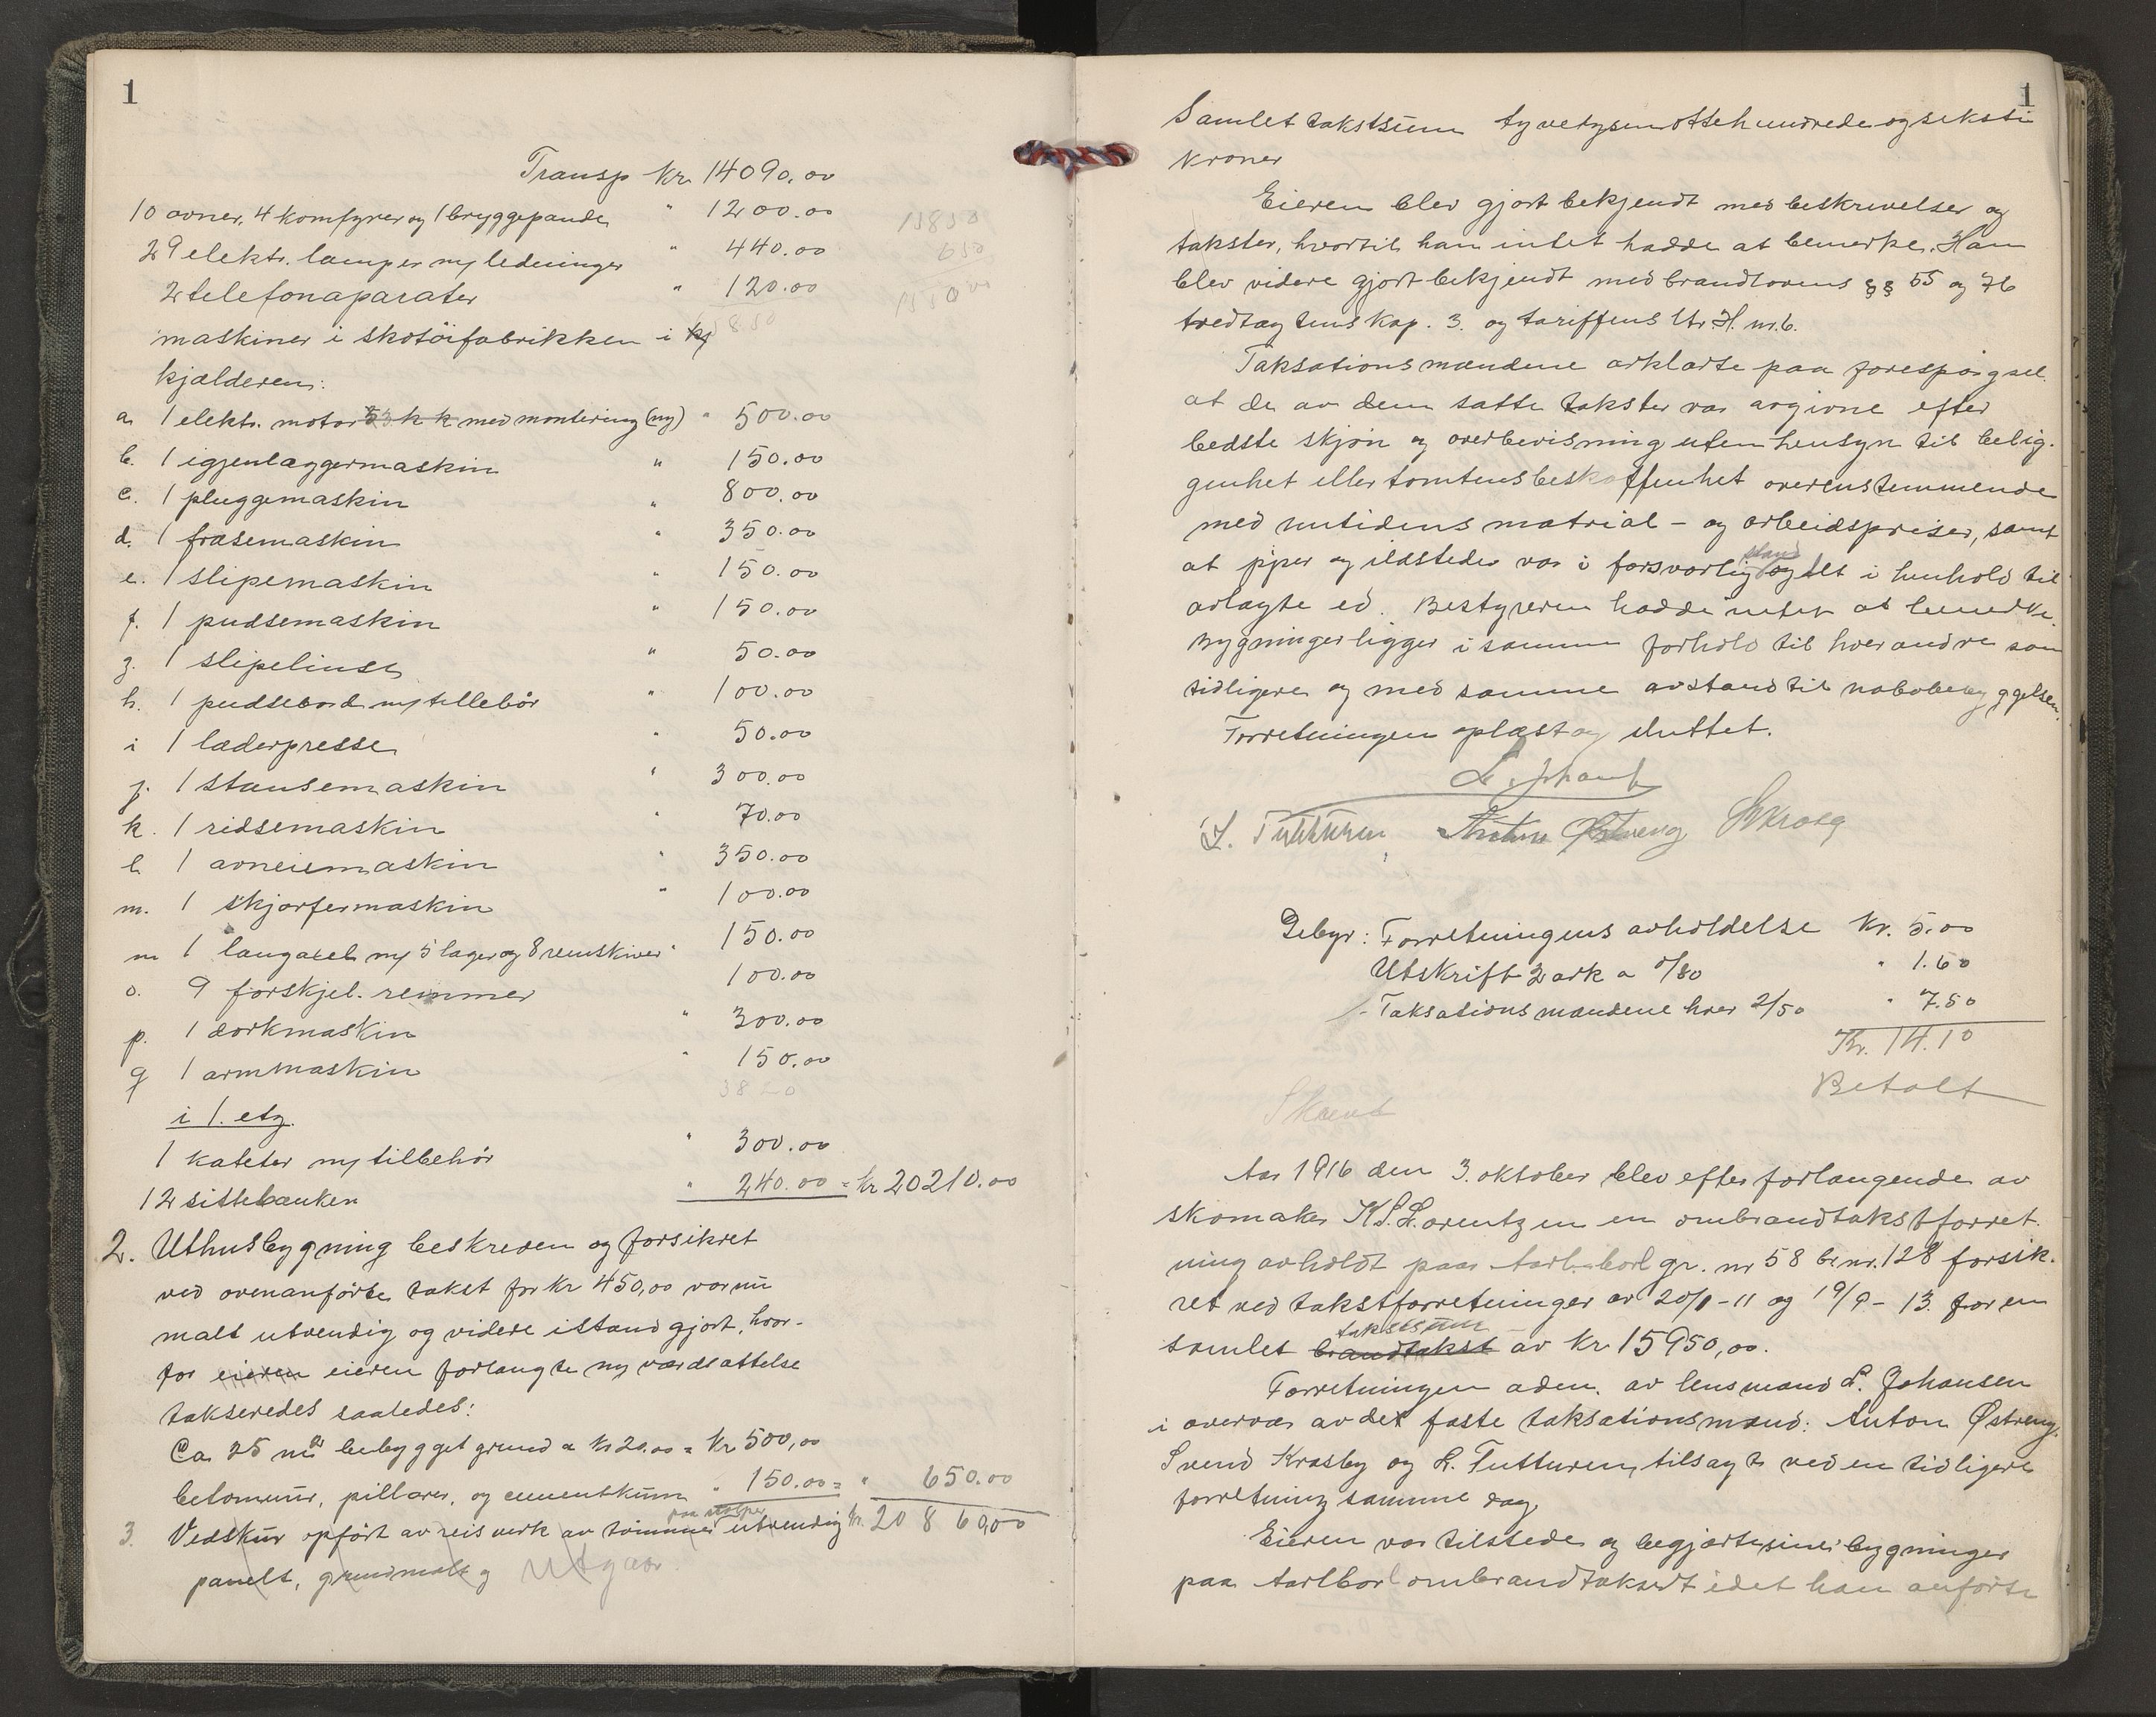 1
Transp Kr. 14090.00
10 ovner, 4 komfyrer og 1 bryggepande " 1200.00
29 elektr. lamper m/ ledninger " 440.00
2 telefonaparater " 120.00
maskiner i skotöifabrikken i kj
kjælderen:
a. 1 elektr. motor 5 h k med montering (ny) " 500.00
b. 1 igjenlæggermaskin " 150.00
c. 1 pluggemaskin " 800.00
d. 1 fræsemaskin " 350.00
e. 1 slipemaskin " 150.00
f. 1 pudsemaskin " 150.00
g. 1 slipelinse " 50.00
h. 1 pudsebord m/ tillebör " 100.00
i 1 læderpresse " 50.00
j. 1 stansemaskin " 300.00
k. 1 ridsemaskin " 70.00
l 1 avneiemaskin " 350.00
m. 1 skjærfermaskin " 100.00
n 1 langaxel m/ 5 lager og 8 remskiver " 150.00
o. 9 forskjel. remmer 100.00
p. 1 dorkmaskin " 300.00
q 1 armmaskin " 150.00
3820
i 1. etg.
1 kateter m/ tilbehör " 300.00
12 sittebænker " 240.00 = kr 20210.00
2. Uthusbygning beskreven og forsikret
ved ovenanförte takst for Kr 450,00 var nu
malt utvendig og videre istandgjort, hvor-
for eieren eieren forlangte ny værdsættelse
takseredes saaledes:
Ca 25 m2 bebygget grund a Kr 20.00 = Kr 500,00
betonmur, pillarer, og cementkum " 150.00 = " 650.00
3. Vedskur opfört av reisverk av tömmer paa stolper utvendig Kr. 20 860,00
panelt, grundmalt og Utgaar

1
Samlet takstsum tyvetysenottehundredeogseksti
kroner
Eieren blev gjort bekjendt med beskrivelser og
takster, hvortil han intet hadde at bemerke. Han
blev videre gjort bekjendt med brandlovens §§ 55 og 76
vedtægtens kap. 3. og tariffens Utr. H. nr. 6.
Taksationsmændene erklærte paa forespörgsel
at de av dem satte takster var avgivne efter
bedste skjön og overbevisning uten hensyn til belig-
genhet eller tomtens beskaffenhet overenstemmende
med nutidens matrial- og arbeidspriser, samt
at piper og ildsteder var i forsvarlig stand og alt i henhold til
avlagte ed. Bestyreren hadde intet at bemerke.
Bygninger ligger i samme forhold til hverandre som
tidligere og med samme avstand til nabobebyggelsen.
Forretningen oplæst og sluttet.
L. Johans
L. Tutturen Anton Østreng S Krosby
Gebyr: Forretningens avholdelse Kr. 5.00
Utskrift 2 ark a 0/80 " 1.60
Taksationsmændene hver 2/50 " 7.50
Kr. 14.10
Betalt
Skrevet
Aar 1916 den 3. oktober blev efter forlangende av
skomaker K. S. Lorentzen en ombrandtakstforret-
ning avholdt paa Aarlborl gr. nr 58 br. nr. 128 forsik-
ret ved takstforretninger av 20/1-11 og 19/9-13. for en
samlet brandtakst takstsum av Kr 15950,00.
Forretningen adm. av lensmand L. Johansen
i overvær av det faste taksationsmænd: Anton Østreng,
Svend Krosby og L. Tutturen, tilsagt ved en tidligere
forretning samme dag.
Eieren var tilstede og begjærte sine bygninger
paa Aarlborl ombrandtaksert idet han anförte